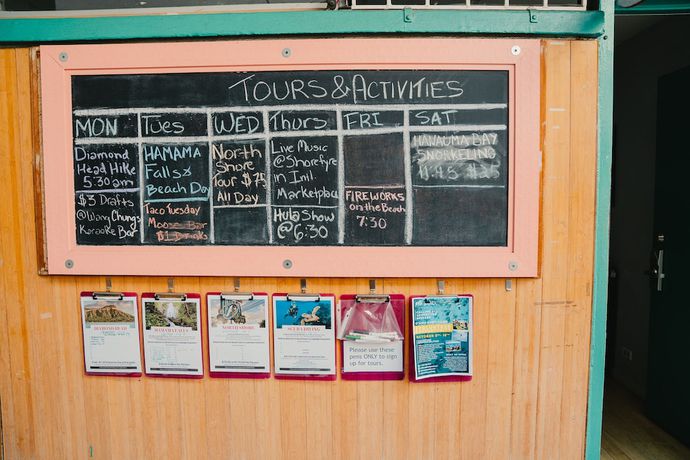 TOURS & ACTIVITIES
MON
Diamond
Head Hike
5:30am
$3 Drafts
@WangChungs
Karaoke Bar
Tues
HAMAMA
Falls &
Beach Day
Taco Tuesday
Moose Bar
$1 Drinks
WED
North
Shore
Tour $75
All Day
Thurs
Live Music
@Shorefyre
in Intl.
Marketplace
Hula Show
@6:30
FRI
FIREWORKS
on the Beach
7:30
SAT
HANAUMA BAY
SNORKELING
$25
DIAMOND HEAD
HAMAMA FALLS
NORTH SHORE
SCUBA DIVING
Please use these
pens ONLY to sign
up for tours.